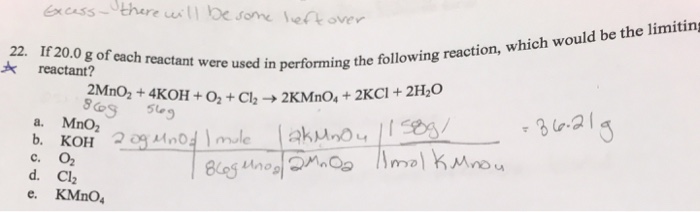 Excess - there will be some left over
22. If 20.0 g of each reactant were used in performing the following reaction, which would be the limiting
reactant?
2MnO₂ + 4KOH + O₂ + Cl₂ → 2KMnO₄ + 2KCl + 2H₂O
86g 56g
a. MnO₂
b. KOH
c. O₂
d. Cl₂
e. KMnO₄
20g MnO₂ 1 mole 2KMnO4 158g/ = 36.21g
86g MnO₂ 2MnO₂ 1mol KMnO4